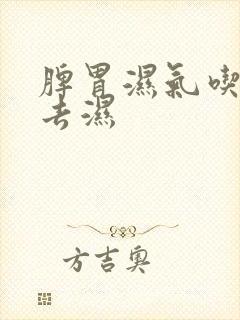 脾胃濕氣喫
去濕
方吉奧